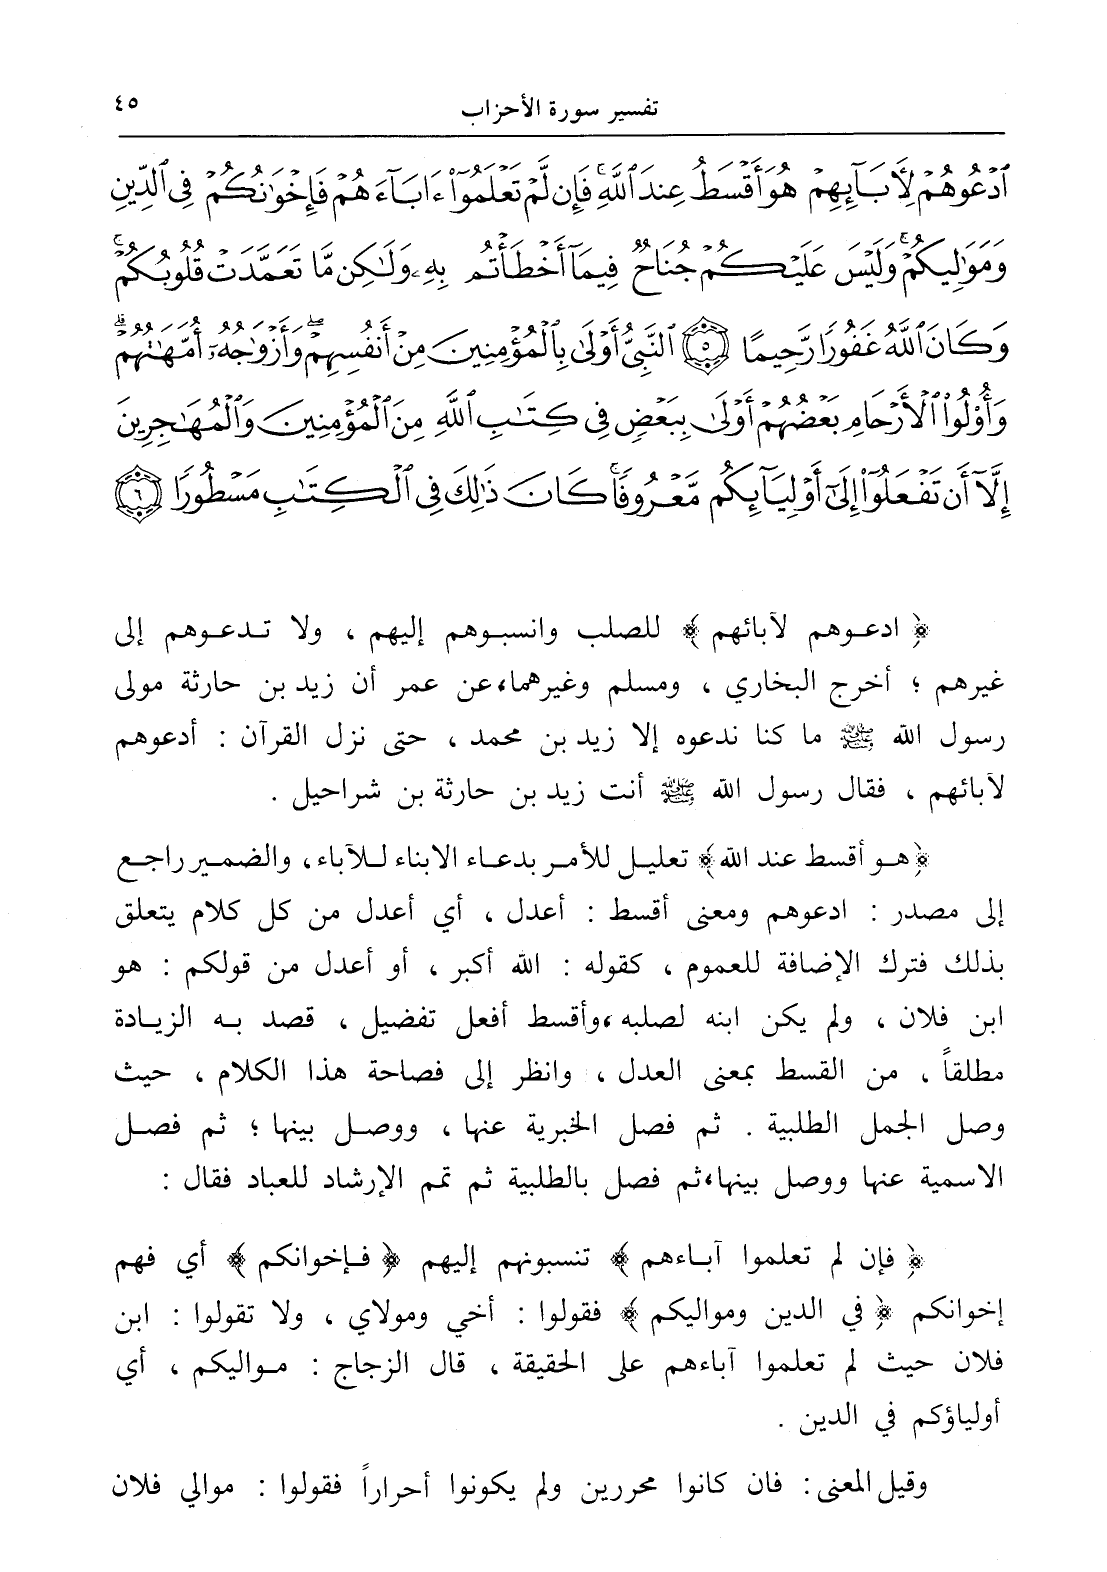 تفسير سورة الأحزاب ٤٥
ٱدْعُوهُمْ لِأَبَآئِهِمْ هُوَ أَقْسَطُ عِندَ ٱللَّهِ ۚ فَإِن لَّمْ تَعْلَمُوٓا۟ ءَابَآءَهُمْ فَإِخْوَٰنُكُمْ فِى ٱلدِّينِ
وَمَوَٰلِيكُمْ ۚ وَلَيْسَ عَلَيْكُمْ جُنَاحٌ فِيمَآ أَخْطَأْتُم بِهِۦ وَلَٰكِن مَّا تَعَمَّدَتْ قُلُوبُكُمْ ۚ
وَكَانَ ٱللَّهُ غَفُورًا رَّحِيمًا ۝٥ ٱلنَّبِىُّ أَوْلَىٰ بِٱلْمُؤْمِنِينَ مِنْ أَنفُسِهِمْ ۖ وَأَزْوَٰجُهُۥٓ أُمَّهَٰتُهُمْ ۗ
وَأُو۟لُوا۟ ٱلْأَرْحَامِ بَعْضُهُمْ أَوْلَىٰ بِبَعْضٍ فِى كِتَٰبِ ٱللَّهِ مِنَ ٱلْمُؤْمِنِينَ وَٱلْمُهَٰجِرِينَ
إِلَّآ أَن تَفْعَلُوٓا۟ إِلَىٰٓ أَوْلِيَآئِكُم مَّعْرُوفًا ۚ كَانَ ذَٰلِكَ فِى ٱلْكِتَٰبِ مَسْطُورًا ۝٦
﴿ ادعوهم لآبائهم ﴾ للصلب وانسبوهم إليهم ، ولا تدعوهم إلى
غيرهم ؛ أخرج البخاري ، ومسلم وغيرهما، عن عمر أن زيد بن حارثة مولى
رسول الله ﷺ ما كنا ندعوه إلا زيد بن محمد ، حتى نزل القرآن : أدعوهم
لآبائهم ، فقال رسول الله ﷺ أنت زيد بن حارثة بن شراحيل .
﴿هو أقسط عند الله﴾ تعليل للأمر بدعاء الابناء للآباء، والضمير راجع
إلى مصدر : ادعوهم ومعنى أقسط : أعدل ، أي أعدل من كل كلام يتعلق
بذلك فترك الإضافة للعموم ، كقوله : الله أكبر ، أو أعدل من قولكم : هو
ابن فلان ، ولم يكن ابنه لصلبه، وأقسط أفعل تفضيل ، قصد به الزيادة
مطلقاً ، من القسط بمعنى العدل ، وانظر إلى فصاحة هذا الكلام ، حيث
وصل الجمل الطلبية . ثم فصل الخبرية عنها ، ووصل بينها ؛ ثم فصل
الاسمية عنها ووصل بينها، ثم فصل بالطلبية ثم تمم الإرشاد للعباد فقال :
﴿ فإن لم تعلموا آباءهم ﴾ تنسبونهم إليهم ﴿ فإخوانكم ﴾ أي فهم
إخوانكم ﴿ في الدين ومواليكم ﴾ فقولوا : أخي ومولاي ، ولا تقولوا : ابن
فلان حيث لم تعلموا آباءهم على الحقيقة ، قال الزجاج : مواليكم ، أي
أولياؤكم في الدين .
وقيل المعنى : فان كانوا محررين ولم يكونوا أحراراً فقولوا : موالي فلان